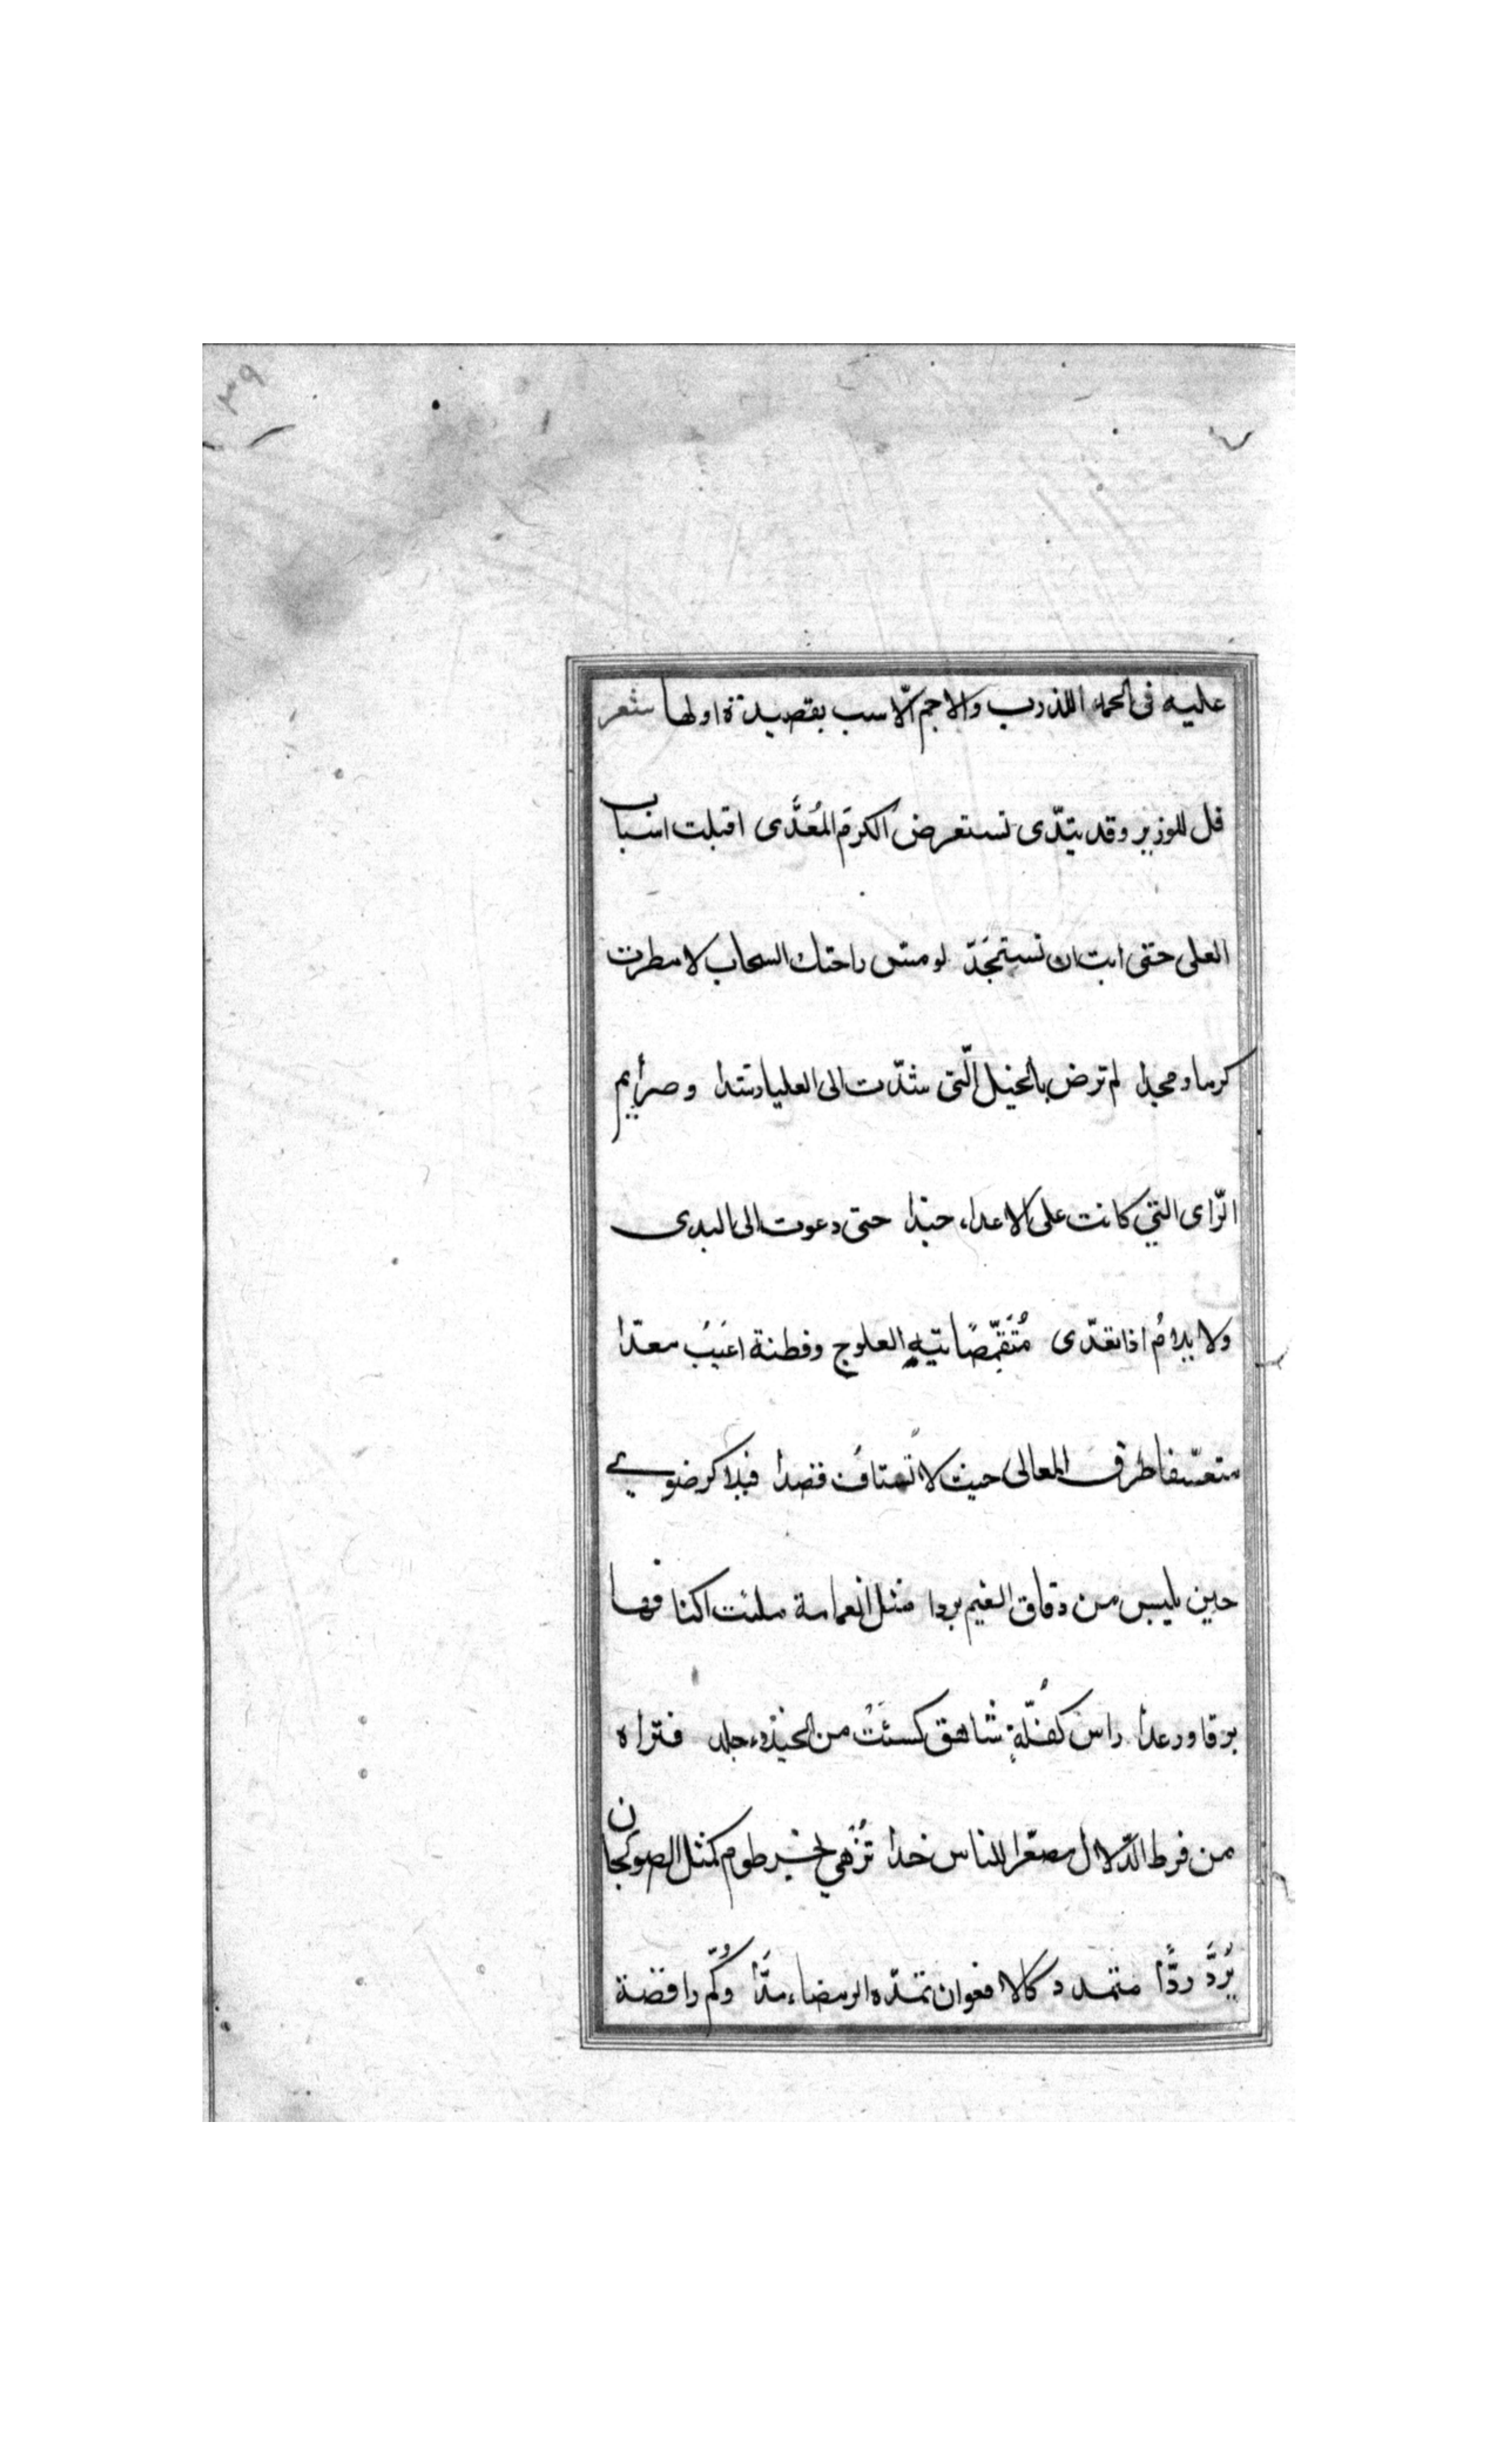 ٣٩
عليه في الحماء اللذرب والاجم الاسب بقصيدة اولها شعر
قل للوزير وقد يتدّى تستعرض الكرم المُعَدَّى اقبلت اسباب
العلى حتى ابت ان تستجَدّ لو مسّ راحتك السحاب لامطرت
كرما ومجدا لم ترض بالخيل الّتى شدّت الى العلياء شدا وصرايم
الرّاى التي كانت على الاعداء حبذا حتى دعوت الى البدى
ولا يلامُ اذا تعدّى مُتَقَمّصًا تيه العلوج وفطنة اعيَبُ معدّا
متعسّفا طرق المعالى حيث لا تُعتافُ قصدا فيلا كرضوى
حين يلبس من دقاق الغيم بردا مثل الغمامة ملئت اكنافها
برقا ورعدا راس كقُلّةِ شاهق كسئَتْ من الخيذء جلد فتراه
من فرط الدّلال مصعّرا للناس خدا تُزهي لخرطوم كمثل الصولجان
يُرَدُّ ردًّا متمدد كالافعوان تمدّه الرمضاء مدَّا وُكّم راقصة